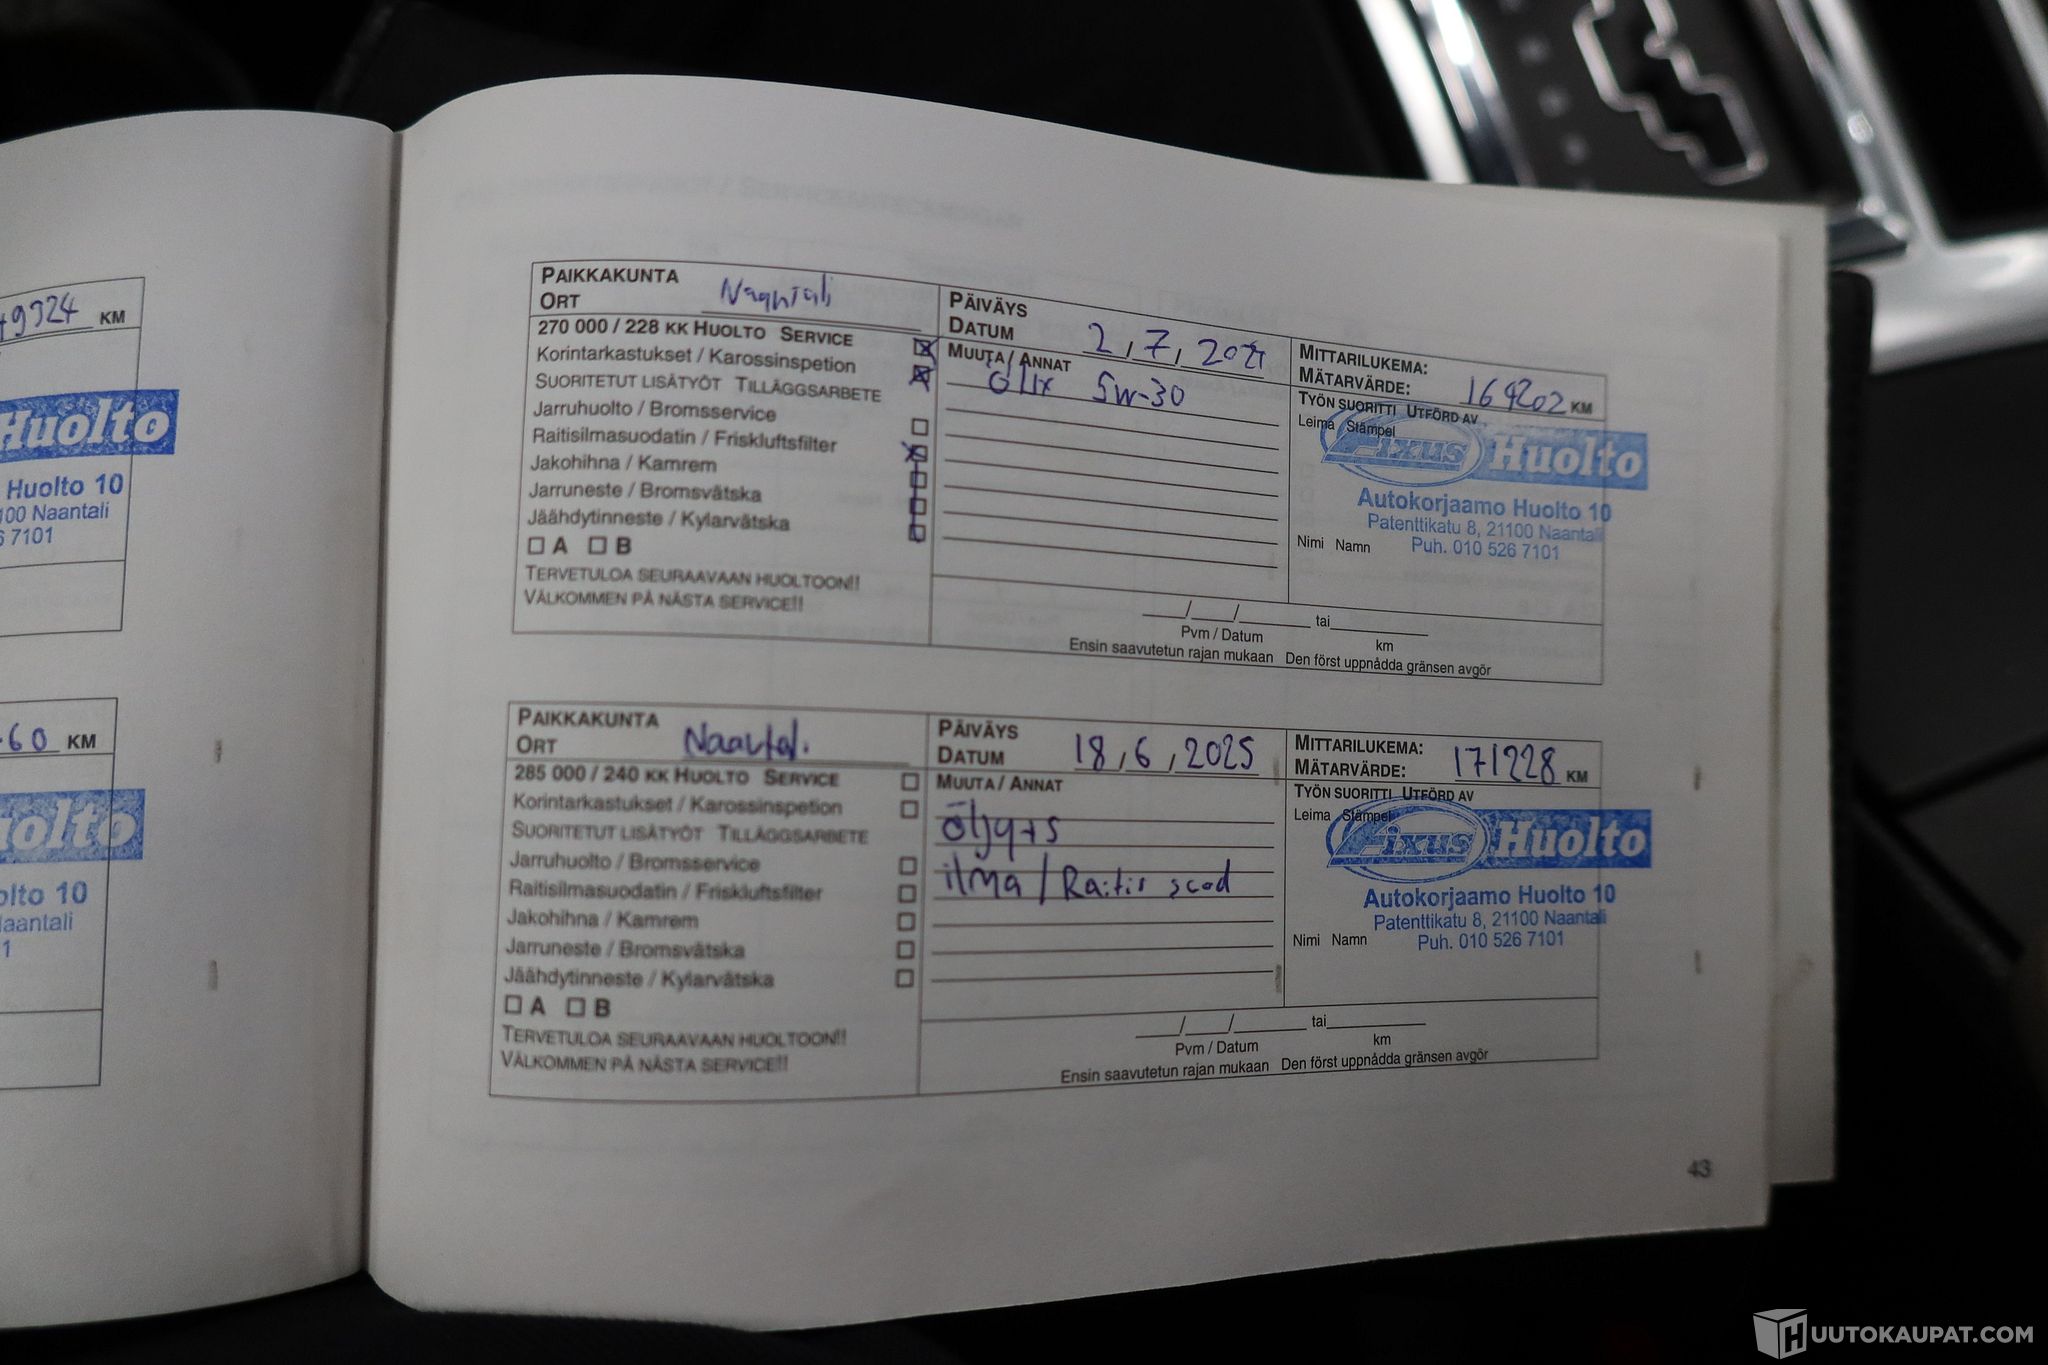 49924 KM
Huolto
Huolto 10
100 Naantali
6 7101
60 KM
uolto
olto 10
Naantali
1
PAIKKAKUNTA
ORT Naantali
270 000 / 228 KK HUOLTO SERVICE
Korintarkastukset / Karossinspetion
SUORITETUT LISÄTYÖT TILLÄGGSARBETE
Jarruhuolto / Bromsservice
Raitisilmasuodatin / Friskluftsfilter
Jakohihna / Kamrem
Jarruneste / Bromsvätska
Jäähdytinneste / Kylarvätska
A B
TERVETULOA SEURAAVAAN HUOLTOON!!
VÄLKOMMEN PÅ NÄSTA SERVICE!!
PÄIVÄYS
DATUM 2, 7,
MUUTA / ANNAT
5W-30
MITTARILUKEMA:
MÄTARVÄRDE: 169202 KM
TYÖN SUORITTI UTFÖRD AV
Leima Stämpel
Fixus Huolto
Autokorjaamo Huolto 10
Patenttikatu 8, 21100 Naantali
Nimi Namn Puh. 010 526 7101
__/__/____ tai____
Pvm / Datum km
Ensin saavutetun rajan mukaan Den först uppnådda gränsen avgör
PAIKKAKUNTA
ORT Naantali
285 000 / 240 KK HUOLTO SERVICE
Korintarkastukset / Karossinspetion
SUORITETUT LISÄTYÖT TILLÄGGSARBETE
Jarruhuolto / Bromsservice
Raitisilmasuodatin / Friskluftsfilter
Jakohihna / Kamrem
Jarruneste / Bromsvätska
Jäähdytinneste / Kylarvätska
A B
TERVETULOA SEURAAVAAN HUOLTOON!!
VÄLKOMMEN PÅ NÄSTA SERVICE!!
PÄIVÄYS
DATUM 18, 6, 2025
MUUTA / ANNAT
öljy+s
ilma / Raitis suod
MITTARILUKEMA:
MÄTARVÄRDE: 171228 KM
TYÖN SUORITTI UTFÖRD AV
Leima Stämpel
Fixus Huolto
Autokorjaamo Huolto 10
Patenttikatu 8, 21100 Naantali
Nimi Namn Puh. 010 526 7101
__/__/____ tai____
Pvm / Datum km
Ensin saavutetun rajan mukaan Den först uppnådda gränsen avgör
43
HUUTOKAUPAT.COM